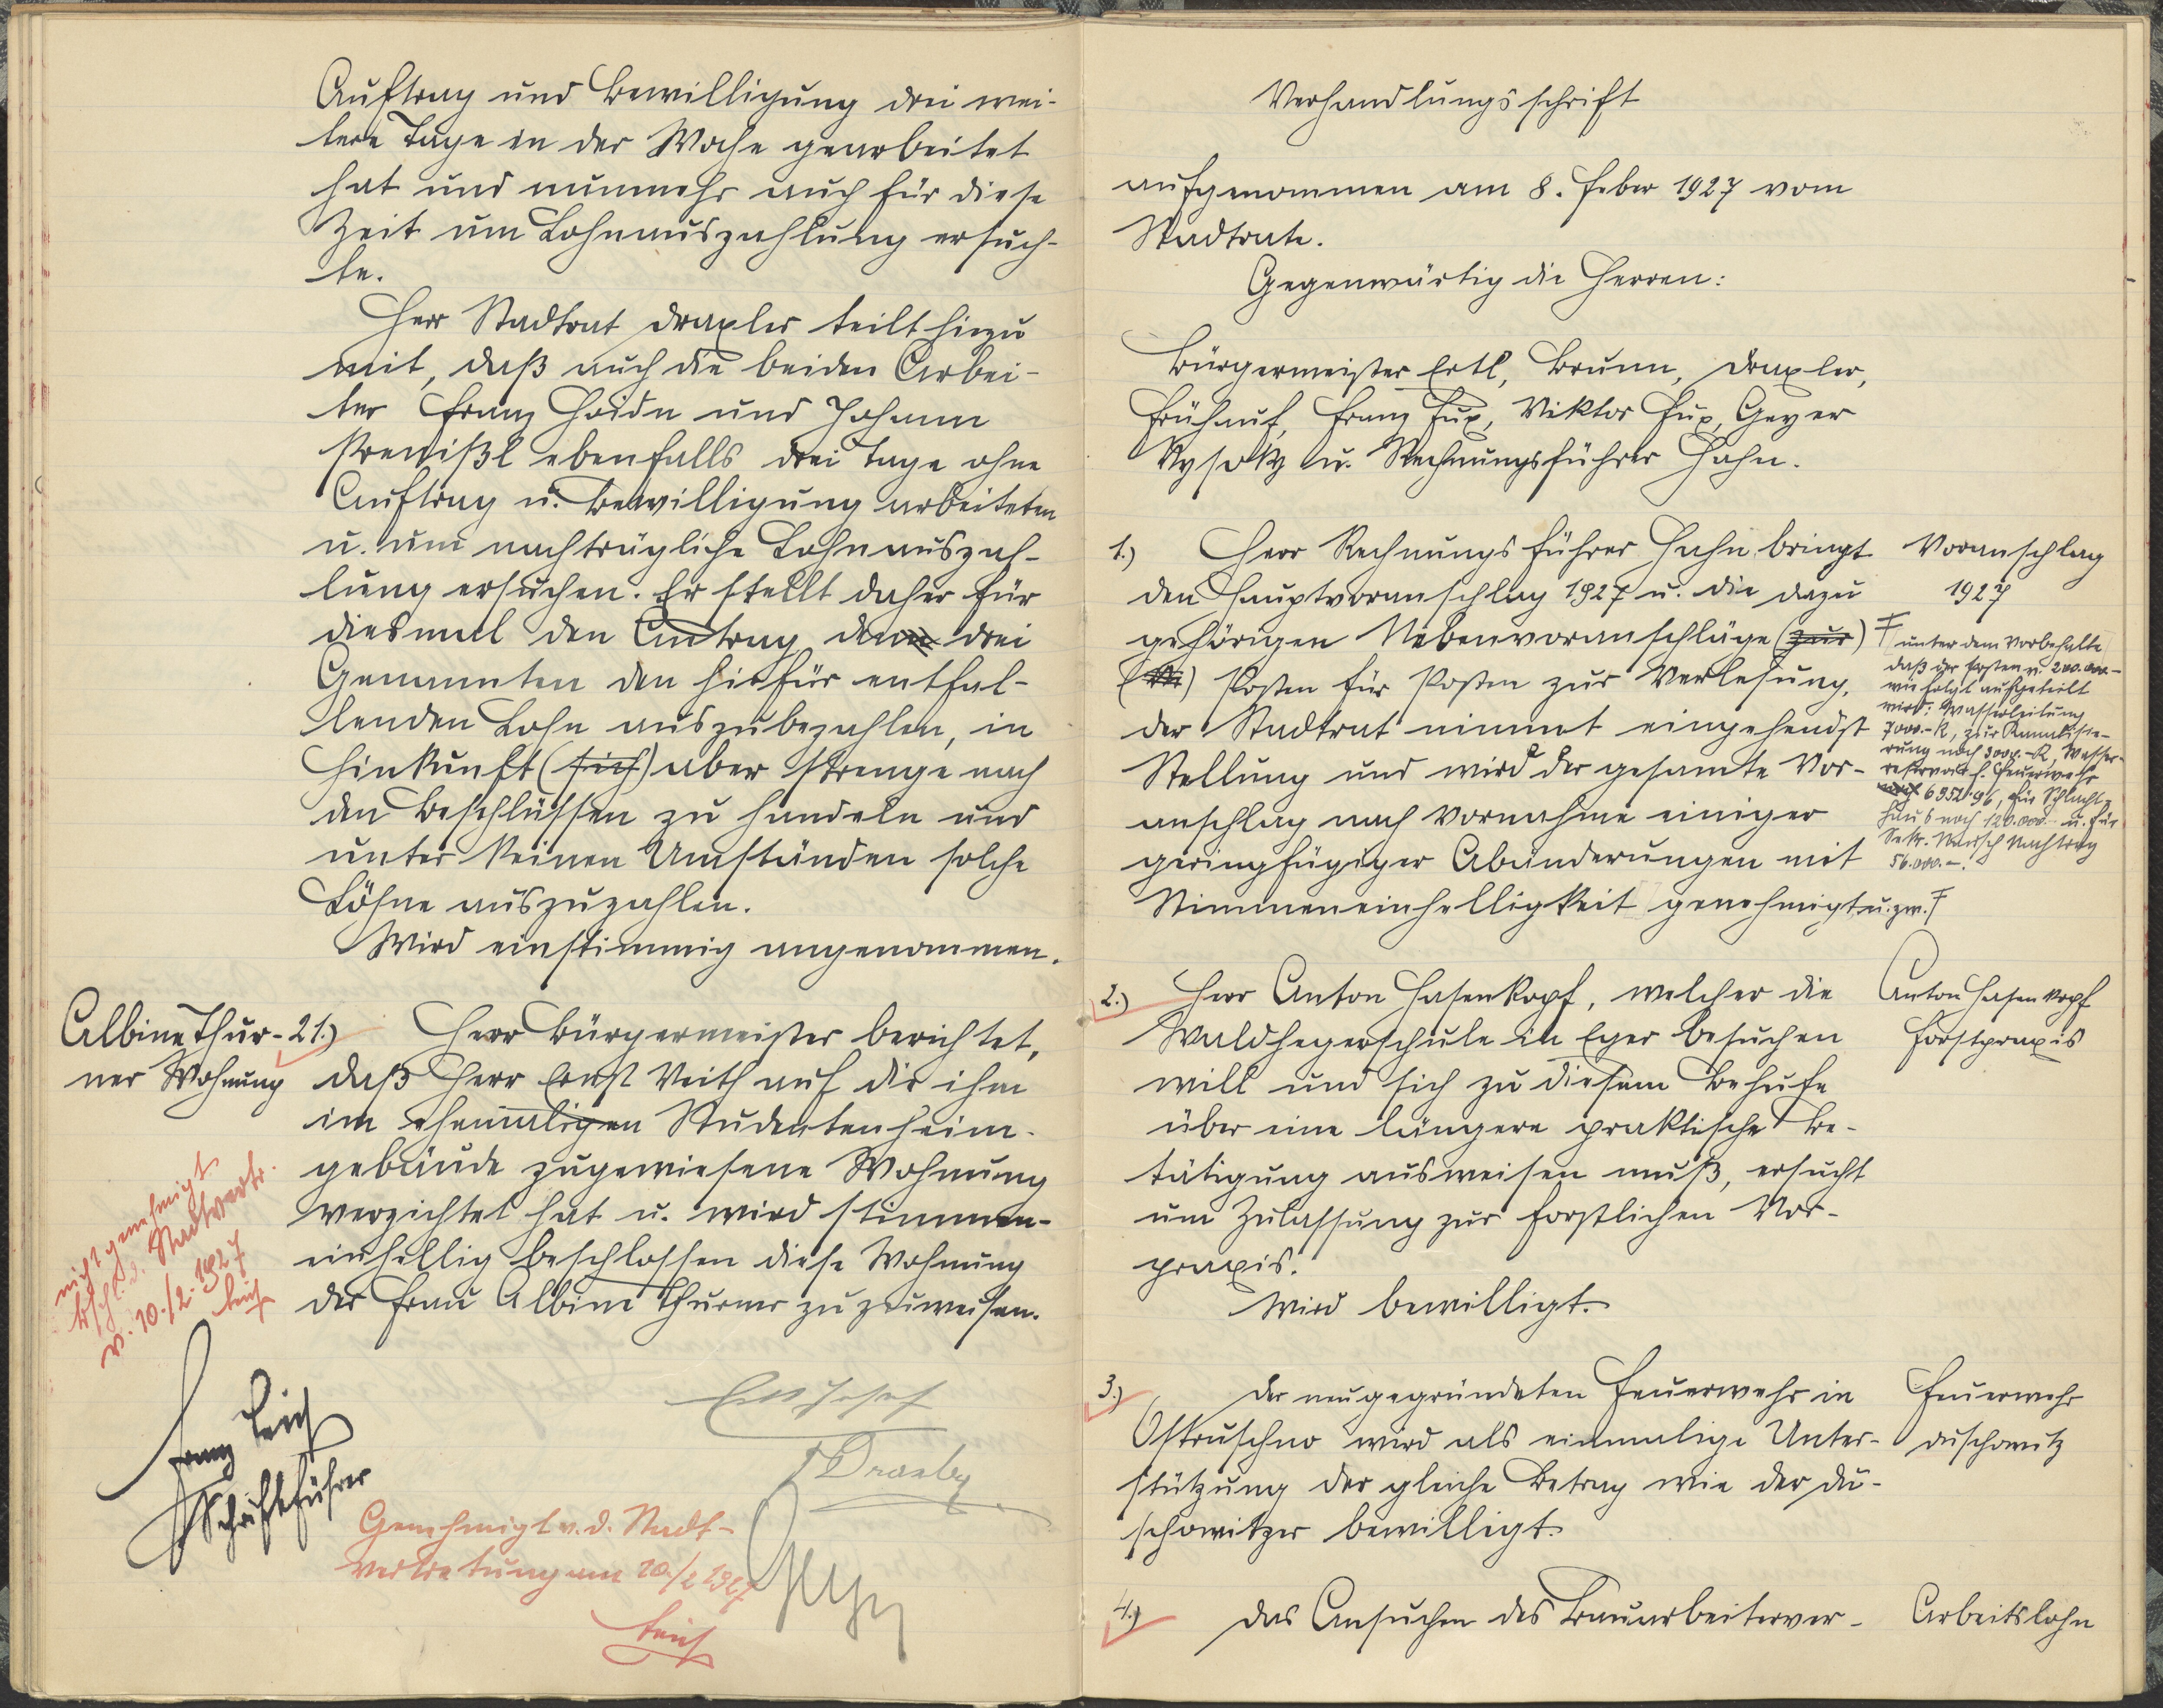 Auftrag und Bewilligung drei wei-
tere Tage in der Woche gearbeitet
hat und nunmehr auch für diese
Zeit um Lohnauszahlung ersuch-
te.
Herr Stadtrat Draxler teilt hiezu
mit, daß auch die beiden Arbei-
ter Franz Haidn und Johann
ebenfalls drei Tage ohne
Auftrag u. Bewilligung arbeiteten
u. um nachträgliche Lohnauszah-
lung ersuchen. Er stellt daher für
diesmal den Antrag den drei
Genannten den hiefür entfal-
lenden Lohn auszubezahlen, in
Hinkunft (sich) aber strenge nach
den Beschlüssen zu handeln und
unter keinen Umständen solche
Löhne auszuzahlen.
Wird einstimmig angenommen.
Albine Thur-
ner Wohnung
21.) Herr Bürgermeister berichtet,
daß Herr Ernst Veith auf die ihm
im ehemaligen Studentenheim-
gebäude zugewiesene Wohnung
verzichtet hat u. wird stimmen-
einhellig beschlossen diese Wohnung
der Frau Albine Thurner zuzuweisen.
nicht genehmigt
Bschl. d. Stadtvertr.
v. 10./2. 1927
Leich
Franz Leich
Schriftführer
Ertl Josef
Genehmigt v. d. Stadt-
vertretung am 10./2 1927
Leich
Geyer
Verhandlungsschrift
aufgenommen am 8. Feber 1927 vom
Stadtrate.
Gegenwärtig die Herren:
Bürgermeister Ertl, Brunn, Draxler,
Frühauf, Franz Fux, Viktor Fux, Geyer
Kysoky u. Rechnungsführer Hahn.
1.) Herr Rechnungsführer Hahn bringt
den Hauptvoranschlag 1927 u. die dazu
gehörigen Nebenvoranschläge (zur)
Posten für Posten zur Verlesung.
Der Stadtrat nimmt eingehendst
Stellung und wird der gesamte Vor-
anschlag nach Vornahme einiger
geringfügiger Abänderungen mit
Stimmeneinhelligkeit genehmigt u. zw. F
Voranschlag
1927
F unter dem Vorbehalte
daß der Posten v. 200.000.-
wie folgt aufgeteilt
wird: Wasserleitung
7000.- K, zur Kanalisie-
rung noch 3000.- K, Wasser-
reservoir f. Feuerwehr
noch 6952.96, für Schlacht-
haus noch 120.000.- u. für
Sekr. Nachtrag
56.000.-.
2.) Herr Anton Hasenkopf, welcher die
Waldhegerschule in Eger besuchen
will und sich zu diesem Behufe
über eine längere praktische Be-
tätigung ausweisen muß, ersucht
um Zulassung zur forstlichen Vor-
praxis.
Wird bewilligt.
Anton Hasenkopf
Forstpraxis
3.) Der neugegründeten Feuerwehr in
Ostruschno wird als einmalige Unter-
stützung der gleiche Betrag wie der Du-
schowitzer bewilligt.
Feuerwehr
Duschowitz
4.) Das Ansuchen des Bauarbeiterver-
Arbeitslohn